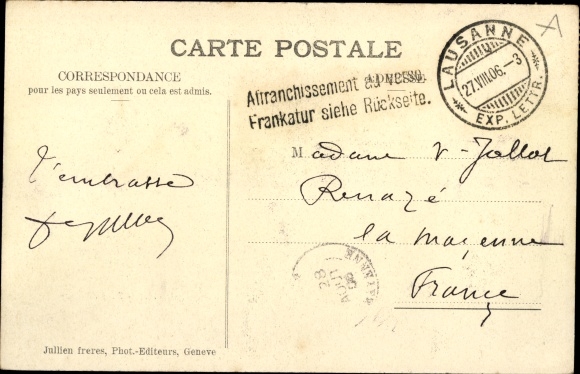 CARTE POSTALE
CORRESPONDANCE
pour les pays seulement ou cela est admis.
ADRESSE
Affranchissement au verso.
Frankatur siehe Rückseite.
LAUSANNE
27.VIII.06.-3
EXP. LETTR.
Madame V- Jallot
Renazé
la mayenne
France
t'embrasse
28
AOUT
06
MAYENNE
Jullien freres, Phot.-Editeurs, Geneve